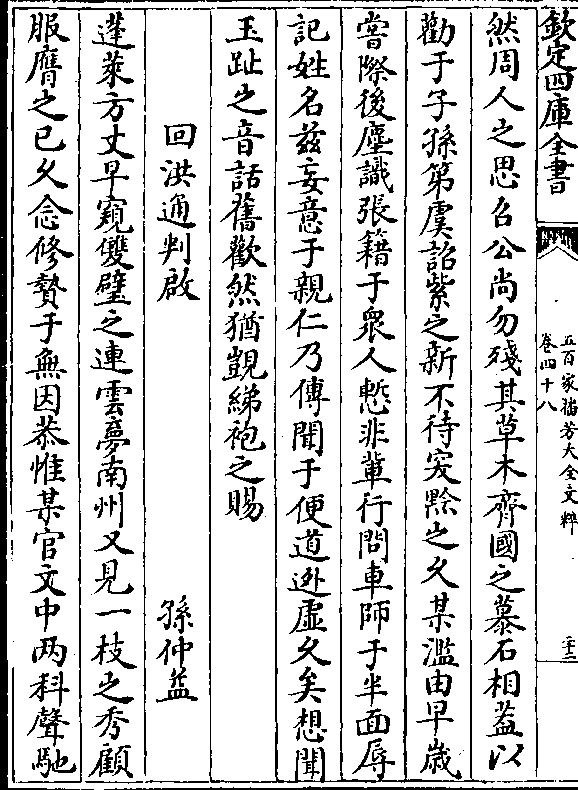 欽定四庫全書
五百家播芳大全文粹
卷四十八
二十二
然周人之思召公尚勿殘其草木齊國之慕石相蓋以
勸于子孫第虞詔紫之新不待突黔之久某濫由早歲
嘗際後塵識張籍于衆人慙非輩行問車師于半面辱
記姓名兹妄意于親仁乃傳聞于便道迯虛久矣想聞
玉趾之音話舊歡然猶覬綈袍之賜
回洪通判啟 孫仲益
蓬萊方丈早窺雙璧之連雲夢南州又見一枝之秀顧
服膺之已久念修贄于無因恭惟某官文中两科聲馳